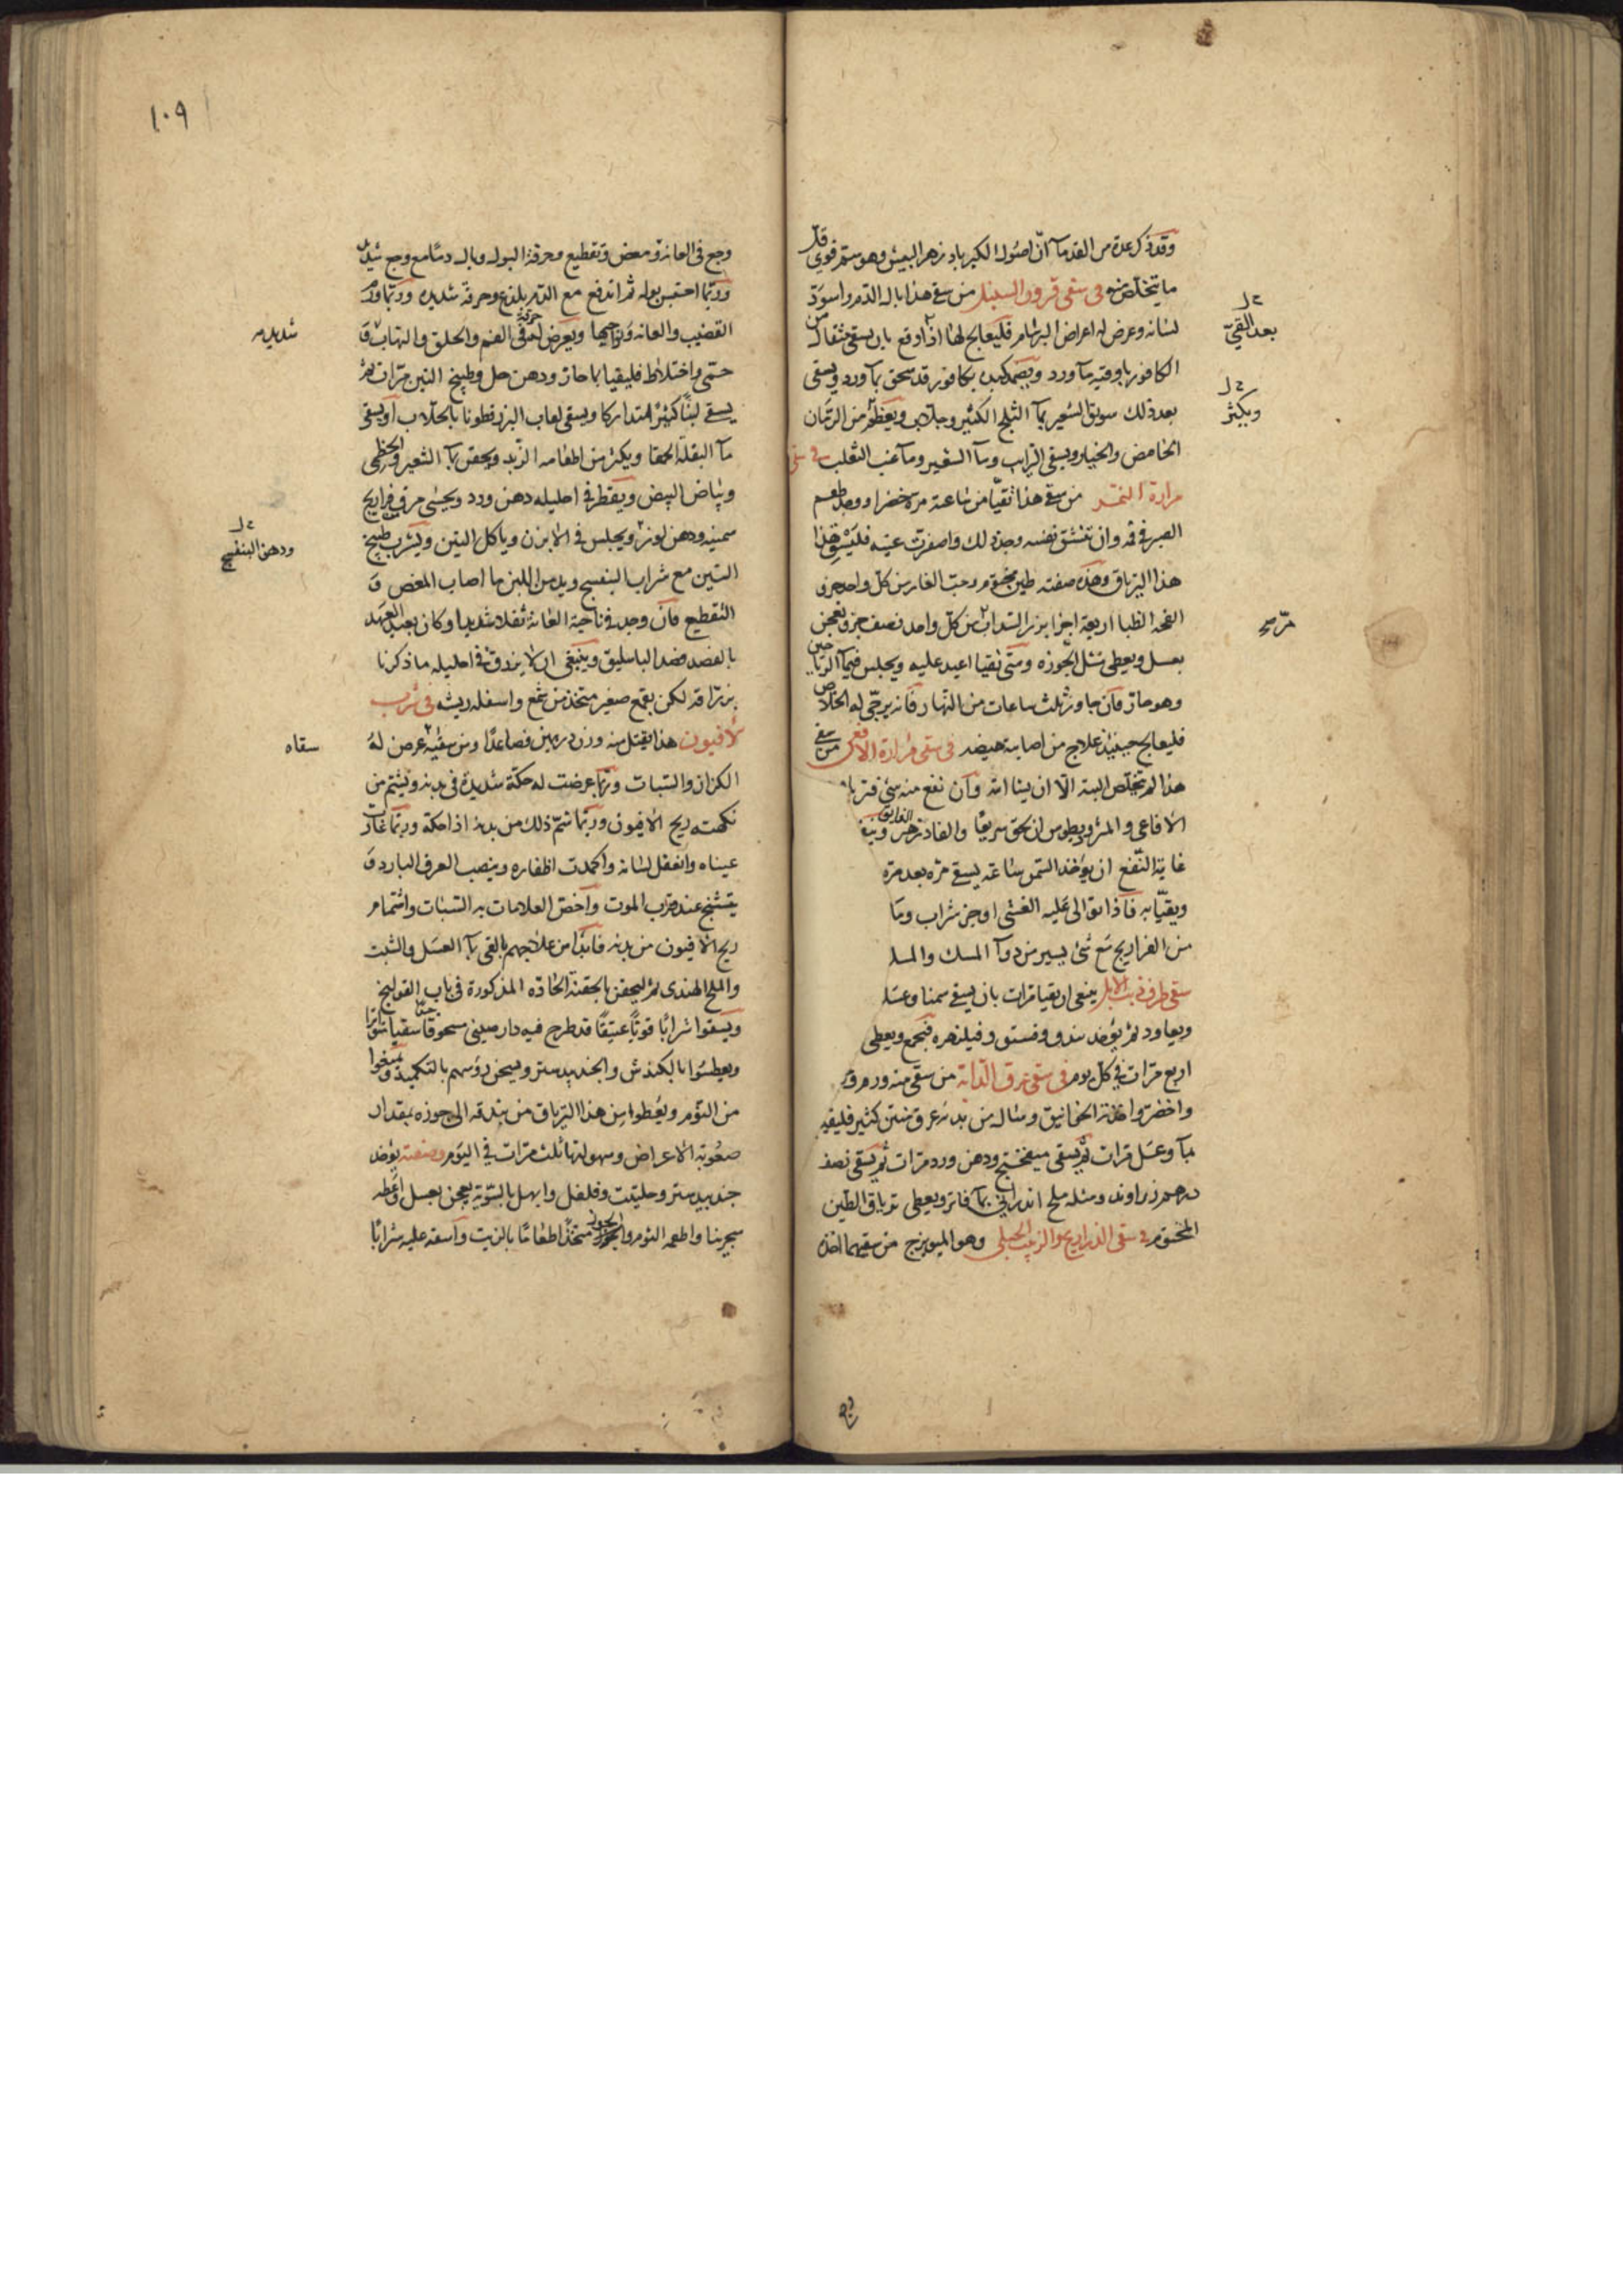 وقد ذكر عدة من القدمآ انّ اصول الكبر باد زهر البيش وهو سمّ قوي قلّ
ما يتخلّص منه في سقى قرون السنبل من سقى هذا بال الدّم واسودّ
لسانه وعرض له اعراض البرسام فليعالج لهذا اذا وقع بان يسقى مثقال من
الكافور باوقيه مآ ورد ويضمد كبده بكافور قد سحق بمآ ورد ويسقى
بعد ذلك سويق الشعير بمآ الثلج الكثير وجلاب ويعظم من الرمّان
الحامض والخيار ويسقى الرايب ومآ الشعير ومآ عنب الثعلب في سقى
مرارة النمر من سقى هذا تقيّأ من ساعته مرة خضرا ووجد طعم
الصبر في فمه وان تنشق نفسه وجد ذلك واصفرّت عينه فليسق
هذا الترياق وهذه صفته طين مختوم وحب الغار من كلّ واحد جزو
انفحة الظبا اربعة اجزا بزر السداب من كلّ واحد نصف جزو يعجن
بعسل ويعطى مثل الجوزه ومتى تقيا اعيد عليه ويجلس في
وهو حار فان جاوز ثلث ساعات من النهار فانه يرجّى له الخلاص
فليعالج حينيذ علاج من اصابته هيضه في سقى مرارة الافعى من سقى
هذا لم يتخلّص البته الّا ان يشا الله وان نفع منه شئ فترياق
الافاعي والمثروديطوس ان لحق سريعًا والفادزهر الفايق وينفع
غاية النّفع ان يؤخذ السمن ساعة يسقى مرّه بعد مرّه
ويقيّأ به فاذا توالى عليه الغشى اوجر شراب ومآ
من الفراريج مع شئ يسير من دوآ المسك والمسك
سقى طرف ذنب الايل ينبغى ان يقيا مرات بان يسقى سمنا وعسلا
ويعاود ثم يؤخذ بندق وفستق وفيلزهره فتجمع ويعطى
اربع مرّات في كل يوم في سقى عرق الدّابة من سقى منه ورم وجهه
واخضرّ واخذته الخوانيق وسال من بدنه عرق منتن كثير فليقيه
بمآ وعسل مرات ثم يسقى ميفختج ودهن ورد مرات ثم يسقى نصف
درهم زراوند ومثله ملح اندرانى بمآ فاتر ويعطى ترياق الطين
المختوم في سقى الذراريح والزبيب الجبلى وهو الميويزج من سقيهما اخذه
بعد القيّ
ويكثر
وجع في العانة ومغص وتقطيع وحرقة البول وبال دمًا مع وجع شديد
وربّما احتبس بوله ثم اندفع مع الدّم بلذع وحرقة شديده وربّما ورم
القضيب والعانه ونواحيها ويعرض له حرقة في الفم والحلق والتهاب و
حمّى واختلاط فليقيا بما حار ودهن حل وطبيخ التين مرّات ثم
يسقى لبنًا كثيرًا متداركا ويسقى لعاب البزرقطونا بالجلاب اويسقى
مآ البقلة الحمقا ويكثر من اطعامه الزّبد ويحقن بمآ الشعير والخطمى
وبياض البيض ويقطر في احليله دهن ورد ويحسّى مرق فراريج
سمينه ودهن لوز ويجلس في الابزن وياكل التين ويشرب طبيخ
التين مع شراب البنفسج ويدمن اللبن ما اصاب المغص و
التقطيع فان وجد في ناحية العانة ثقلا شديدا وكان بعيد العهد
بالفصد فصد الباسليق وينبغى ان لا يزرق في احليله ما ذكرنا
بزرّاقه لكن بقمع صغير متخذ من شمع واسفله ريشه في شرب
الافيون هذا يقتل منه وزن درهمين فصاعدًا ومن سقيه عرض له
الكزاز والسبات وربّما عرضت له حكّة شديدة في بدنه ويشتم من
نكهته ريح الافيون وربّما شمّ ذلك من بدنه اذا حكّه وربّما غارت
عيناه وانعقل لسانه واكمدت اظفاره وينصب العرق البارد و
يتشنج عند قرب الموت واخصّ العلامات به السبات واشتمام
ريح الافيون من بدنه فابدا من علاجهم بالقى بمآ العسل والشبت
والملح الهندى ثم ليحقن بالحقنة الحادّه المذكورة في باب القولنج
ويسقوا شرابًا قويًّا عتيقًا قد طرح فيه دارصينى مسحوقا سقيا متواترا
ويعطسوا بالكندش والجندبيدستر ويسخن رؤسهم بالتكميد ويمنعوا
من النّوم ويعطوا من هذا الترياق من بندقه الى جوزه بمقدار
صعوبة الاعراض وسهولتها ثلث مرّات في اليوم وصفته يؤخذ
جندبيدستر وحلتيت وفلفل وابهل بالسّوية يعجن بعسل واعطه
سجرينا واطعمه الثوم والجوز متخذًا طعامًا بالزيت واسقه عليه شرابًا
شديد
ودهن البنفسج
سقاه
١٠٩